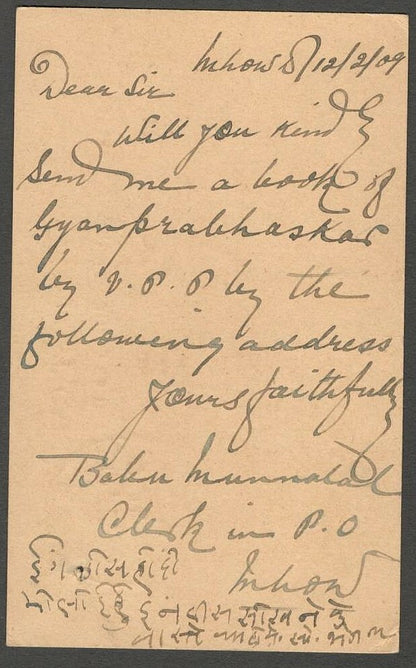 Mhow D/12/2/09
Dear Sir
Will you kindly
Send me a book of
Gyanprabhaskar
by V.P.P by the
following address
yours faithfully
Babu Munnalal
Clerk in P.O
Mhow